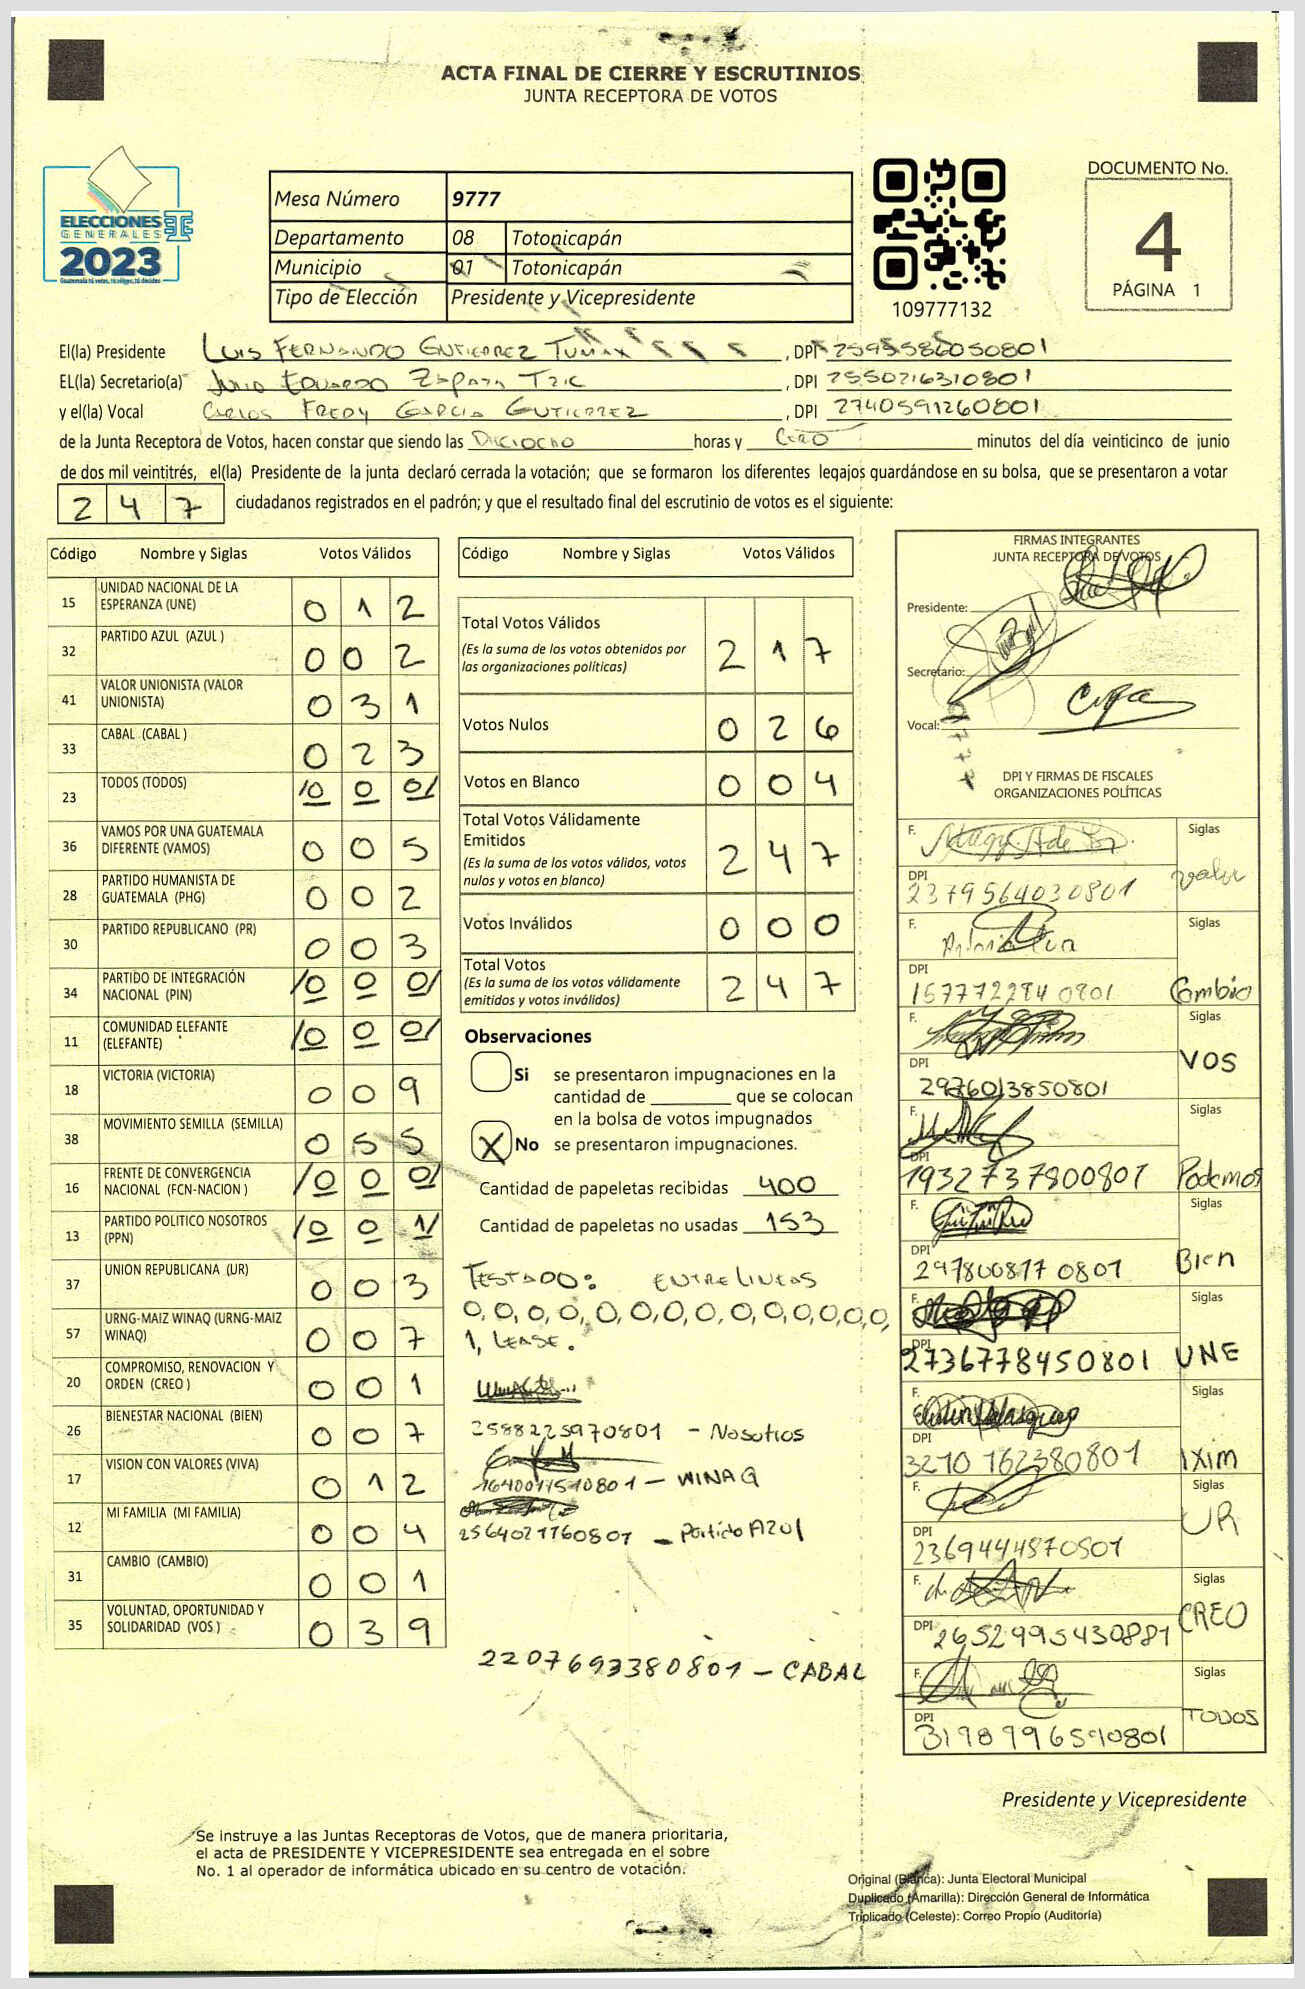 ACTA FINAL DE CIERRE Y ESCRUTINIOS
JUNTA RECEPTORA DE VOTOS
ELECCIONES
GENERALES
2023
Mesa Número 9777
Departamento 08 Totonicapán
Municipio 01 Totonicapán
Tipo de Elección Presidente y Vicepresidente
109777132
DOCUMENTO No.
4
PÁGINA 1
El(la) Presidente LUIS FERNANDO GUTIERREZ TUMAX , DPI 2595586050801
EL(la) Secretario(a) JULIO EDUARDO ZAPATA TZIC , DPI 2550216310801
y el(la) Vocal CARLOS FREDY GARCIA GUTIERREZ , DPI 2740591260801
de la Junta Receptora de Votos, hacen constar que siendo las DIECIOCHO horas y CERO minutos del día veinticinco de junio
de dos mil veintitrés, el(la) Presidente de la junta declaró cerrada la votación; que se formaron los diferentes legajos quardándose en su bolsa, que se presentaron a votar
2 4 7 ciudadanos registrados en el padrón; y que el resultado final del escrutinio de votos es el siguiente:
Código Nombre y Siglas Votos Válidos
15 UNIDAD NACIONAL DE LA ESPERANZA (UNE) 0 1 2
32 PARTIDO AZUL (AZUL ) 0 0 2
41 VALOR UNIONISTA (VALOR UNIONISTA) 0 3 1
33 CABAL (CABAL ) 0 2 3
23 TODOS (TODOS) /0 0 0/
36 VAMOS POR UNA GUATEMALA DIFERENTE (VAMOS) 0 0 5
28 PARTIDO HUMANISTA DE GUATEMALA (PHG) 0 0 2
30 PARTIDO REPUBLICANO (PR) 0 0 3
34 PARTIDO DE INTEGRACIÓN NACIONAL (PIN) /0 0 0/
11 COMUNIDAD ELEFANTE (ELEFANTE) /0 0 0/
18 VICTORIA (VICTORIA) 0 0 9
38 MOVIMIENTO SEMILLA (SEMILLA) 0 5 5
16 FRENTE DE CONVERGENCIA NACIONAL (FCN-NACION ) /0 0 0/
13 PARTIDO POLITICO NOSOTROS (PPN) /0 0 1/
37 UNION REPUBLICANA (UR) 0 0 3
57 URNG-MAIZ WINAQ (URNG-MAIZ WINAQ) 0 0 7
20 COMPROMISO, RENOVACION Y ORDEN (CREO ) 0 0 1
26 BIENESTAR NACIONAL (BIEN) 0 0 7
17 VISION CON VALORES (VIVA) 0 1 2
12 MI FAMILIA (MI FAMILIA) 0 0 4
31 CAMBIO (CAMBIO) 0 0 1
35 VOLUNTAD, OPORTUNIDAD Y SOLIDARIDAD (VOS ) 0 3 9
Código Nombre y Siglas Votos Válidos
Total Votos Válidos
(Es la suma de los votos obtenidos por
las organizaciones políticas) 2 1 7
Votos Nulos 0 2 6
Votos en Blanco 0 0 4
Total Votos Válidamente
Emitidos
(Es la suma de los votos válidos, votos
nulos y votos en blanco) 2 4 7
Votos Inválidos 0 0 0
Total Votos
(Es la suma de los votos válidamente
emitidos y votos inválidos) 2 4 7
Observaciones
Si se presentaron impugnaciones en la
cantidad de ________ que se colocan
en la bolsa de votos impugnados
X No se presentaron impugnaciones.
Cantidad de papeletas recibidas 400
Cantidad de papeletas no usadas 153
TESTADO: ENTRE LINEAS
0, 0, 0, 0, 0, 0, 0, 0, 0, 0, 0, 0, 0,
1, LEASE.
2588225970801 - Nosotros
1640011510801 - WINAQ
2564021760801 - Partido AZUL
2207693380801 - CABAL
FIRMAS INTEGRANTES
JUNTA RECEPTORA DE VOTOS
Presidente:
Secretario:
Vocal:
DPI Y FIRMAS DE FISCALES
ORGANIZACIONES POLÍTICAS
F. Siglas
DPI 2379564030801 Valor
F. Siglas
DPI 1577722840801 Cambio
F. Siglas
DPI 2976013850801 VOS
F. Siglas
DPI 1932737800801 Podemos
F. Siglas
DPI 2978008770801 Bien
F. Siglas
DPI 2736778450801 UNE
F. Siglas
DPI 3210162380801 IXIM
F. Siglas
DPI 2369444870801 UR
F. Siglas
DPI 2652995430881 CREO
F. Siglas
DPI 3198996590801 TODOS
Presidente y Vicepresidente
Se instruye a las Juntas Receptoras de Votos, que de manera prioritaria,
el acta de PRESIDENTE Y VICEPRESIDENTE sea entregada en el sobre
No. 1 al operador de informática ubicado en su centro de votación.
Original (Blanca): Junta Electoral Municipal
Duplicado (Amarilla): Dirección General de Informática
Triplicado (Celeste): Correo Propio (Auditoría)